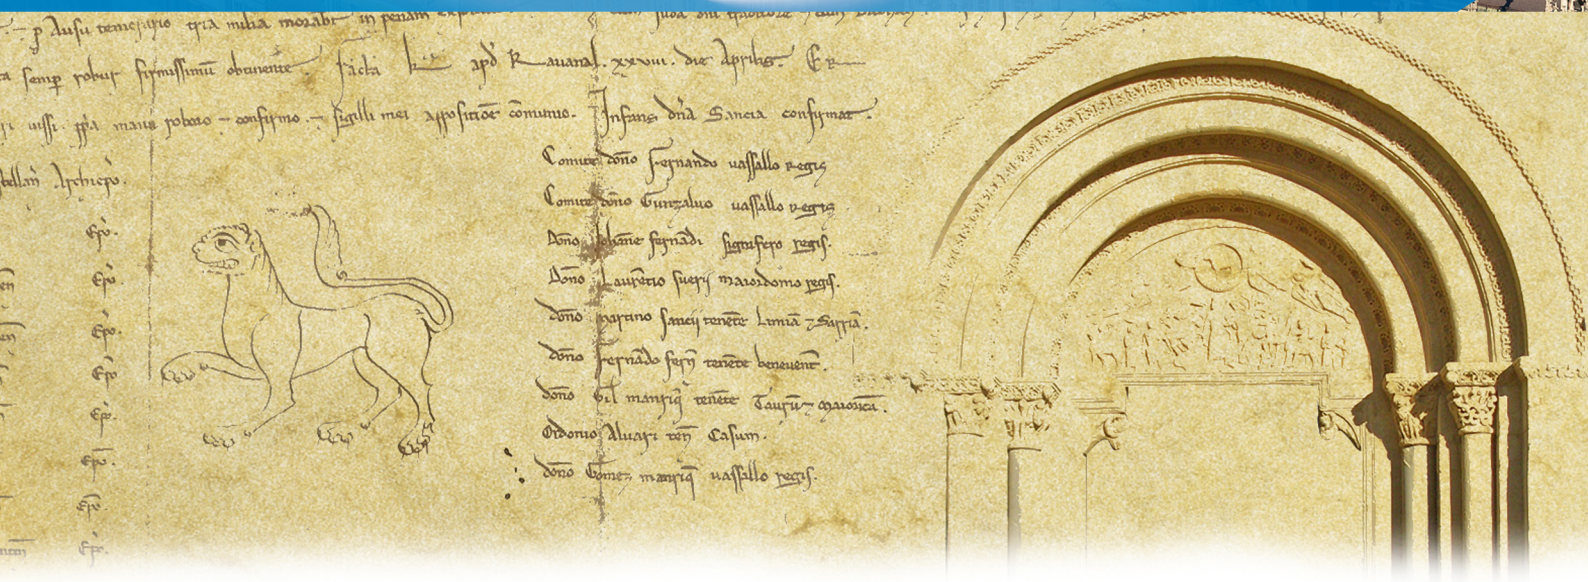 p Ausu temerario tria milia morabt in penam
semp robur firmissimū obtinente. facta k apd Ravanal. xxviii. die Aprilis. Er
iussi. ppa manu roboro confirmo. sigilli mei appositiōe cōmunio. Infans dn̄a Sancia confirmat.
Archiepo.
Comite dōno Fernando vassallo regis
Epo. Comite dōno Gunzalvo vassallo regis
Dōno Iohāne fernādi signifero regis.
Epo. Dōno Laurētio suerij maiordomo regis.
Epo. dōno martino sancij tenēte Limiā Sarriā.
Epo. dōno Fernādo fern̄ tenēte benevent.
Epo. dōno Gil manriq̄ tenēte Taurū maioricā.
Epo. Ordonio Alvari ten̄ Casum.
Epo. dōno Gomez manriq̄ vassallo regis.
Epo.